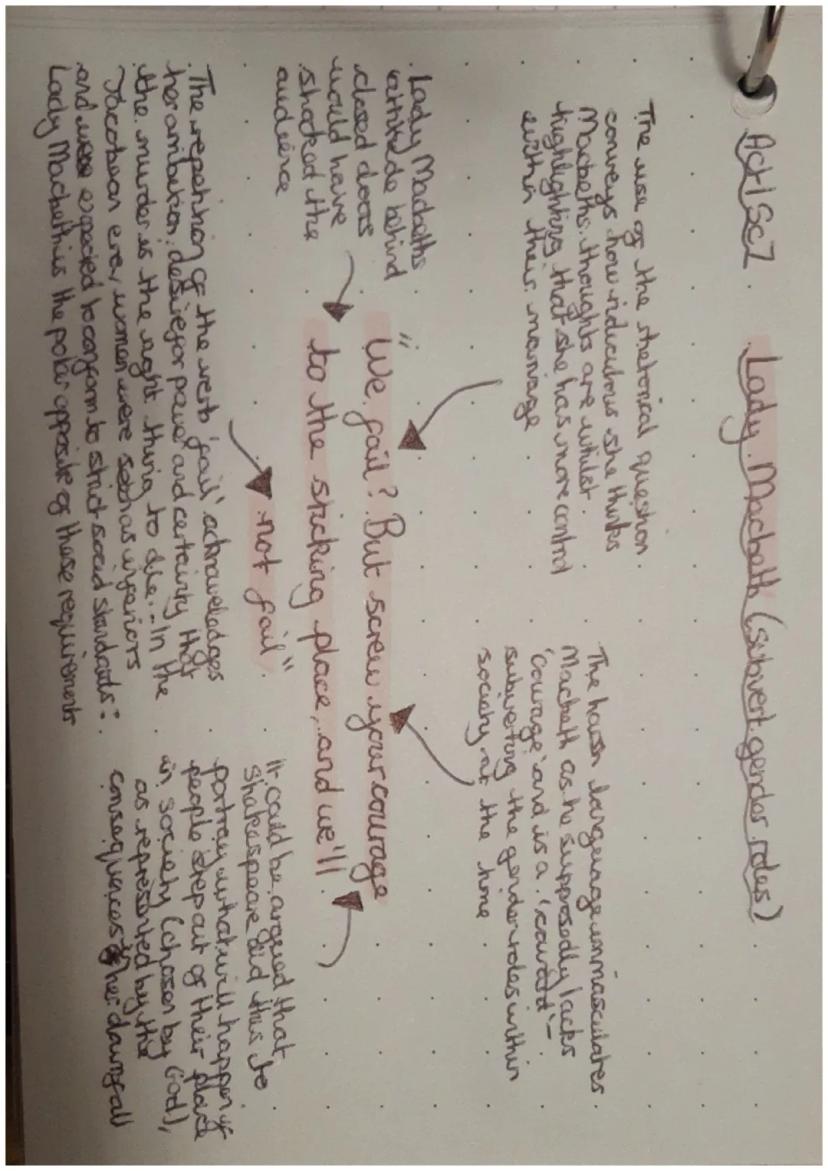 Act 1 Sc 7
Lady Macbeth (subvert gender roles)
The use of the rhetorical question
conveys how ridiculous she thinks
Macbeths thoughts are whilst
highlighting that she has more control
within their marriage
The harsh language unmasculates
Macbeth as he supposedly lacks
'courage' and is a 'coward' –
subverting the gender roles within
society at the time
. Lady Macbeths
attitude behind
closed doors
would have
shocked the
audience
"We fail? But screw your courage
to the sticking place, and we'll
not fail"
. The repetition of the verb 'fail' acknowledges
her ambition, desire for power and certainty that
the murder is the right thing to do. - In the
Jacobean era, women were seen as inferiors
and were expected to conform to strict social standards:
Lady Macbeth is the polar opposite of these requirements
It could be argued that
Shakespeare did this to
portray what will happen if
people step out of their place
in society (chosen by God),
as represented by the
consequences of her downfall